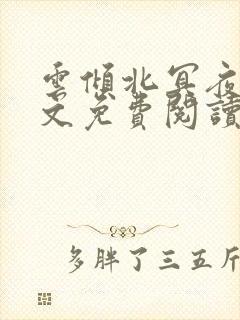 雲傾北冥夜
文免費閱讀
多胖了三五斤